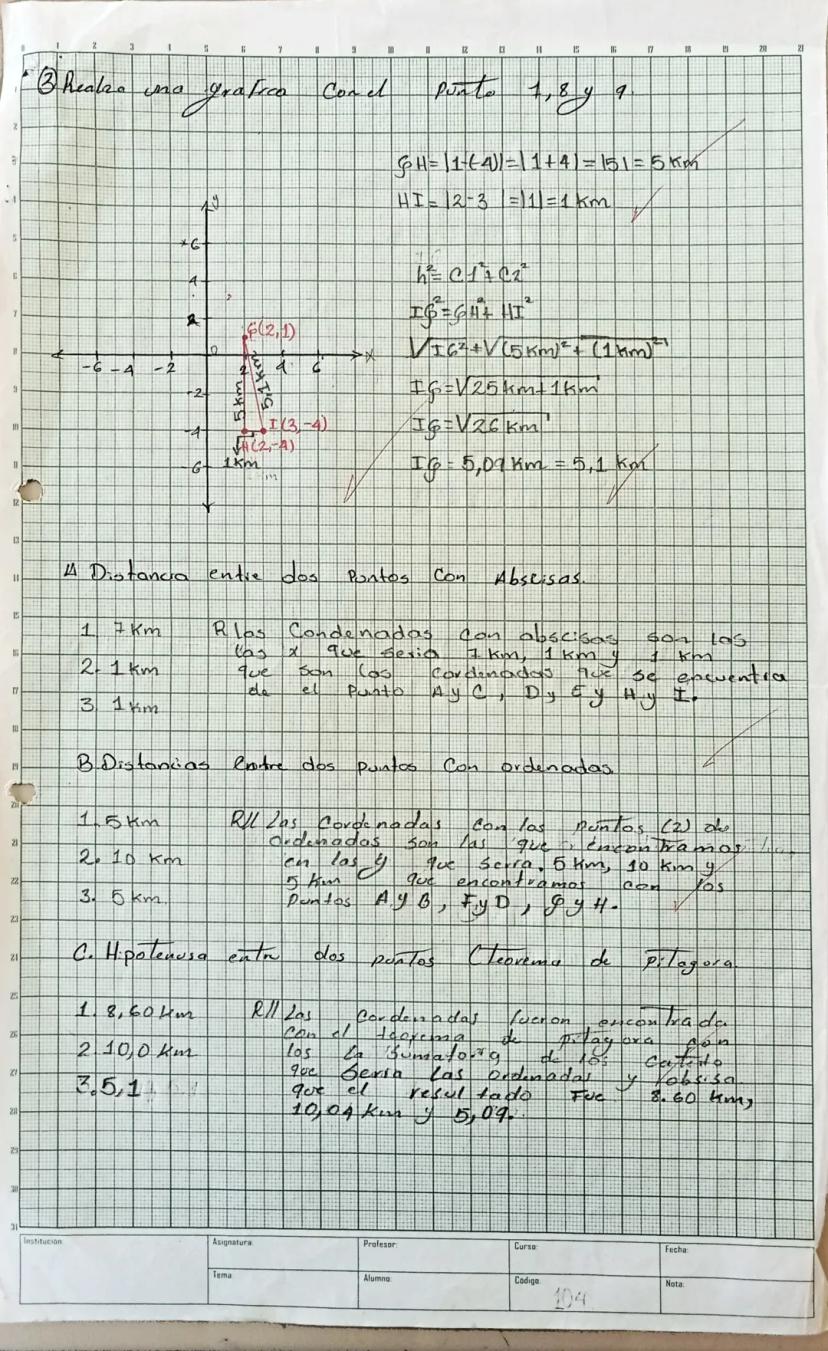 0 1 2 3 4 5 6 7 8 9 10 11 12 13 14 15 16 17 18 19 20 21
③ Realza una grafica Con el Punto 7, 8 y 9.
GH=|1-(-4)|=|1+4|=|5|=5 Km
HI=|2-3|=|1|=1 Km
h²= C1²+C2²
IG²=GH²+HI²
√IG²+√(5Km)²+(1Km)²
IG=√25 km+1Km
IG=√26 Km
IG= 5,09 Km = 5,1 Km
y
6
4
2
G(2,1)
-6 -4 -2 0 2 4 6 x
-2
5 km
5,1 km
-4
I(3,-4)
H(2,-4)
-6
1Km
A Distancia entre dos Puntos Con Abscisas.
1. 7 Km R las Condenadas con abscisas son los
las x que seria 7 km, 1 km y 1 km
2. 1 km que son las cordenadas que se encuentra
de el Punto A y C, D y E y H y I.
3. 1 km
B. Distancias entre dos puntos Con ordenadas.
1. 5 Km R// Las Cordenadas con los puntos (2) de
ordenadas son las que encontramos
2. 10 Km en las y que seria. 5 Km, 10 Km y
5 Km que encontramos con los
3. 5 Km. Puntos A y B, F y D, G y H.
C. Hipotenusa entre dos puntos Cteorema de Pitagora.
1. 8,60 Km R// Las Cordenadas fueron encontrada
con el teorema de pitagora con
2. 10,0 Km los la Sumatoria de los Cateto
que Seria las ordenadas y /absisa
3. 5,1 que el resultado Fue 8.60 Km,
10,04 Km y 5,09.
Institución: Asignatura: Profesor: Curso: Fecha:
Tema: Alumno: Código: 104 Nota: